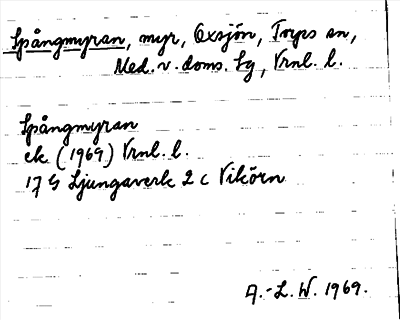 Spångmyran, myr, Oxsjön, Torps sn,
Med. v. doms. Lg, Vrnl. l.
Spångmyran
ek (1969) Vrnl. l.
17 G Ljungaverk 2 c Vikörn
A.-L. W. 1969.